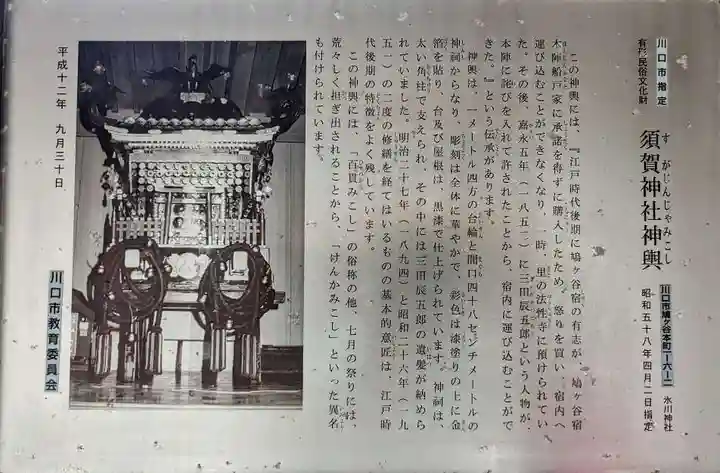 川口市指定
有形民俗文化財
須賀神社神輿
すがじんじゃみこし
川口市鳩ヶ谷本町一ー六ー二 氷川神社
昭和五十八年四月二日指定
この神輿には、『江戸時代後期に鳩ヶ谷宿の有志が、鳩ヶ谷宿
本陣船戸家に承諾を得ずに購入したため、怒りを買い、宿内へ
運び込むことができなくなり、一時、里の法性寺に預けられてい
た。その後、嘉永五年(一八五二)に三田辰五郎という人物が、
本陣に詫びを入れて許されたことから、宿内に運び込むことがで
きた。』という伝承があります。
神輿は、一メートル四方の台輪と間口四十八センチメートルの
神祠からなり、彫刻は全体に華やかで、彩色は漆塗りの上に金
箔を貼り、台及び屋根は、黒漆で仕上げられています。神祠は、
太い角柱で支えられ、その中には三田辰五郎の遺髪が納めら
れていました。明治二十七年(一八九四)と昭和二十六年(一九
五一)の二度の修繕を経てはいるものの基本的意匠は、江戸時
代後期の特徴をよく残しています。
この神輿には、「百貫みこし」の俗称の他、七月の祭りには、
荒々しく担ぎ出されることから、「けんかみこし」といった異名
も付けられています。
平成十二年 九月三十日
川口市教育委員会